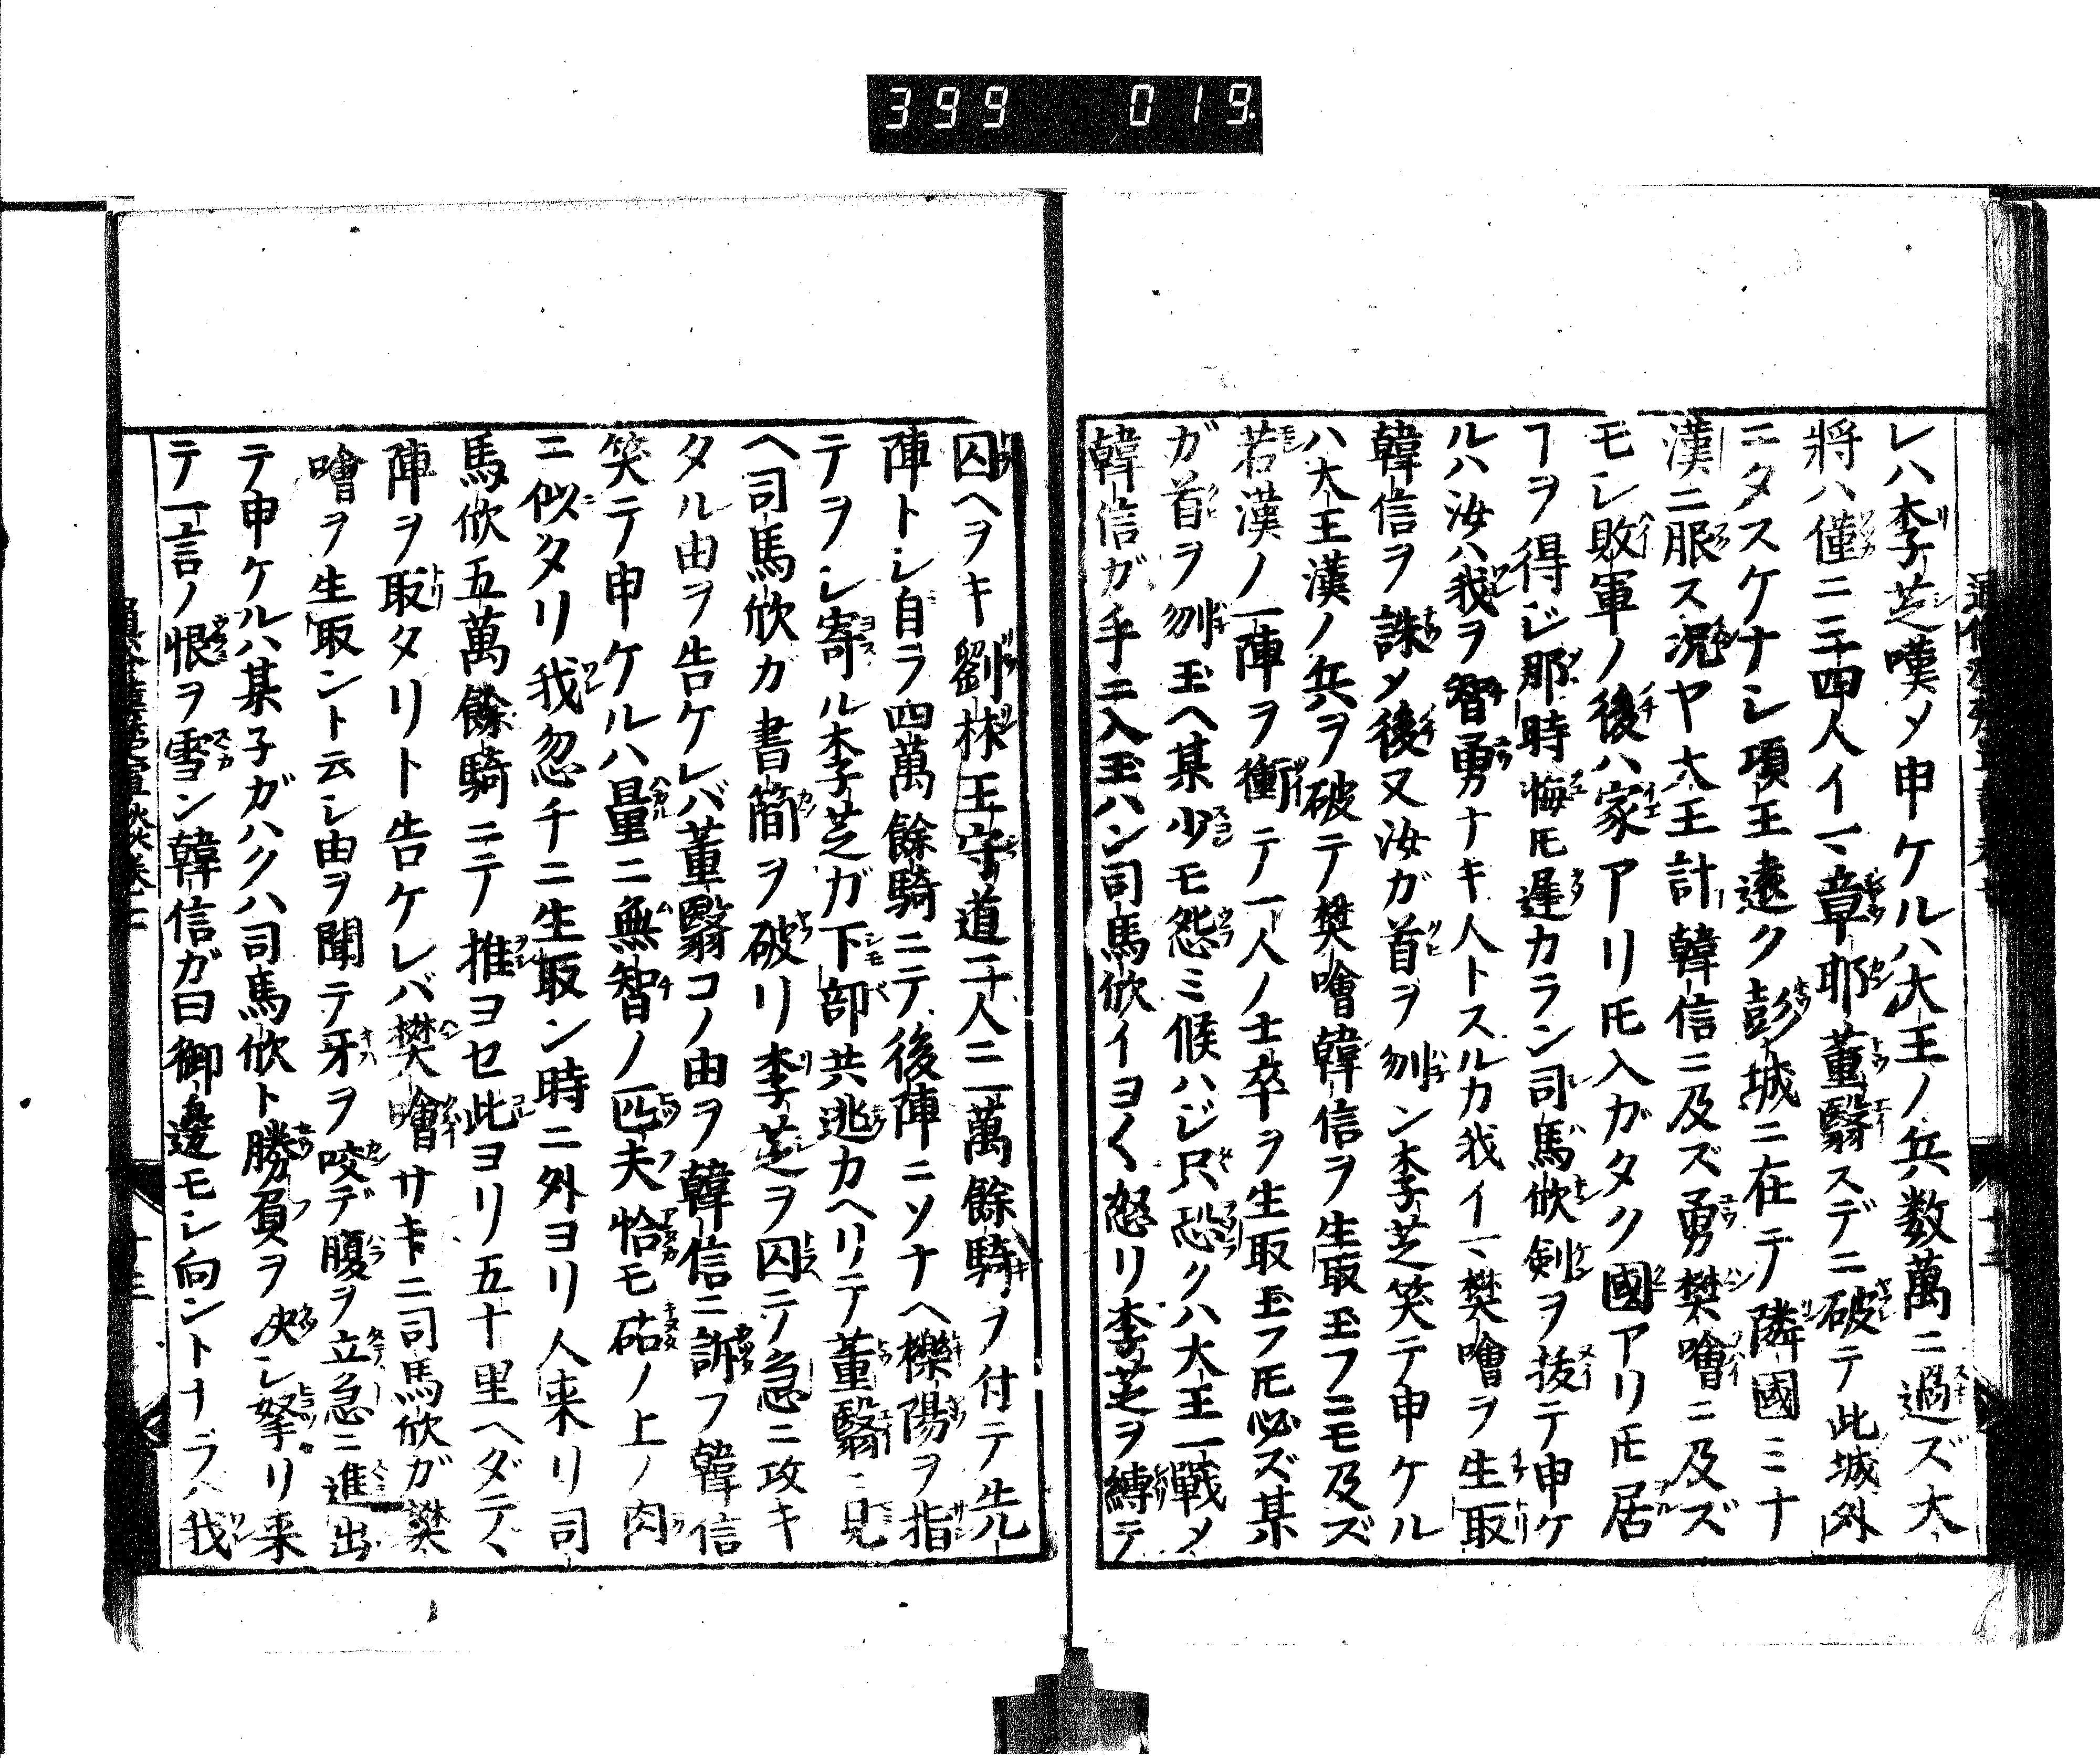 399 019
レハ李芝嘆メ申ケルハ大王ノ兵数萬ニ過ズ大
將ハ僅ニ三四人イマ章邯董翳スデニ破テ此城外
ニタスケナシ項王遠ク彭城ニ在テ隣國ミナ
漢ニ服ス况ヤ大王計韓信ニ及ズ勇樊噲ニ及ズ
モシ敗軍ノ後ハ家アリ𪜈入ガタク國アリ𪜈居
ヿヲ得ジ那時悔𪜈遅カラン司馬欣剣ヲ抜テ申ケ
ルハ汝ハ我ヲ智勇ナキ人トスルカ我イマ樊噲ヲ生取
韓信ヲ誅メ後又汝ガ首ヲ刎ン李芝笑テ申ケル
ハ大王漢ノ兵ヲ破テ樊噲韓信ヲ生取玉フニモ及ズ
若漢ノ一陣ヲ衝テ一人ノ士卒ヲ生取玉フ𪜈必ズ某
ガ首ヲ刎玉ヘ某少モ怨ミ候ハジ只恐クハ大王一戰メ
韓信ガ手ニ入玉ハン司馬欣イヨ〱怒リ李芝ヲ縛テ
囚ヘヲキ劉林王守道二人ニ一萬餘騎ヲ付テ先
陣トシ自ラ四萬餘騎ニテ後陣ニソナヘ櫟陽ヲ指
テヲシ寄ル李芝ガ下部共逃カヘリテ董翳ニ見
ヘ司馬欣ガ書簡ヲ破リ李芝ヲ囚テ急ニ攻キ
タル由ヲ告ケレバ董翳コノ由ヲ韓信ニ訴フ韓信
笑テ申ケルハ量ニ無智ノ匹夫恰モ砧ノ上ノ肉
ニ似タリ我忽チニ生取ン時ニ外ヨリ人来リ司
馬欣五萬餘騎ニテ推ヨセ此ヨリ五十里ヘダテヽ
陣ヲ取タリト告ケレバ樊噲サキニ司馬欣ガ樊
噲ヲ生取ント云シ由ヲ聞テ牙ヲ咬デ腹ヲ立急ニ進出
テ申ケルハ某子ガハクハ司馬欣ト勝負ヲ决シ拏リ来
テ一言ノ恨ヲ雪ン韓信ガ曰御邊モシ向ントナラハ我